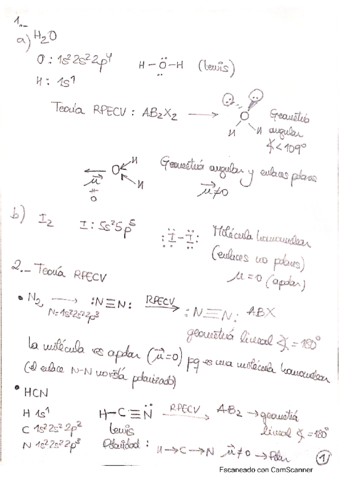 1.-
a) H₂O
O: 1s²2s²2p⁴ H-Ö-H (Lewis)
H: 1s¹
Teoría RPECV: AB₂X₂ → O H H Geometría
angular
∢<109°
μ⃗≠0 O H H Geometría angular y enlaces polares
μ⃗≠0
b) I₂ I: 5s²5p⁵ :I-I: Molécula homonuclear
(enlaces no polares)
μ=0 (apolar)
2.- Teoría RPECV
• N₂ → :N≡N: RPECV→ :N≡N: ABX
N: 1s²2s²2p³ geometría lineal ∢=180°
La molécula es apolar (μ⃗=0) pq es una molécula homonuclear
(el enlace N-N no está polarizado)
• HCN
H 1s¹ H-C≡N: RPECV→ AB₂ → geometría
C 1s²2s²2p² Lewis lineal ∢=180°
N 1s²2s²2p³ Polaridad: H→C→N μ⃗≠0 → Polar
1
Escaneado con CamScanner